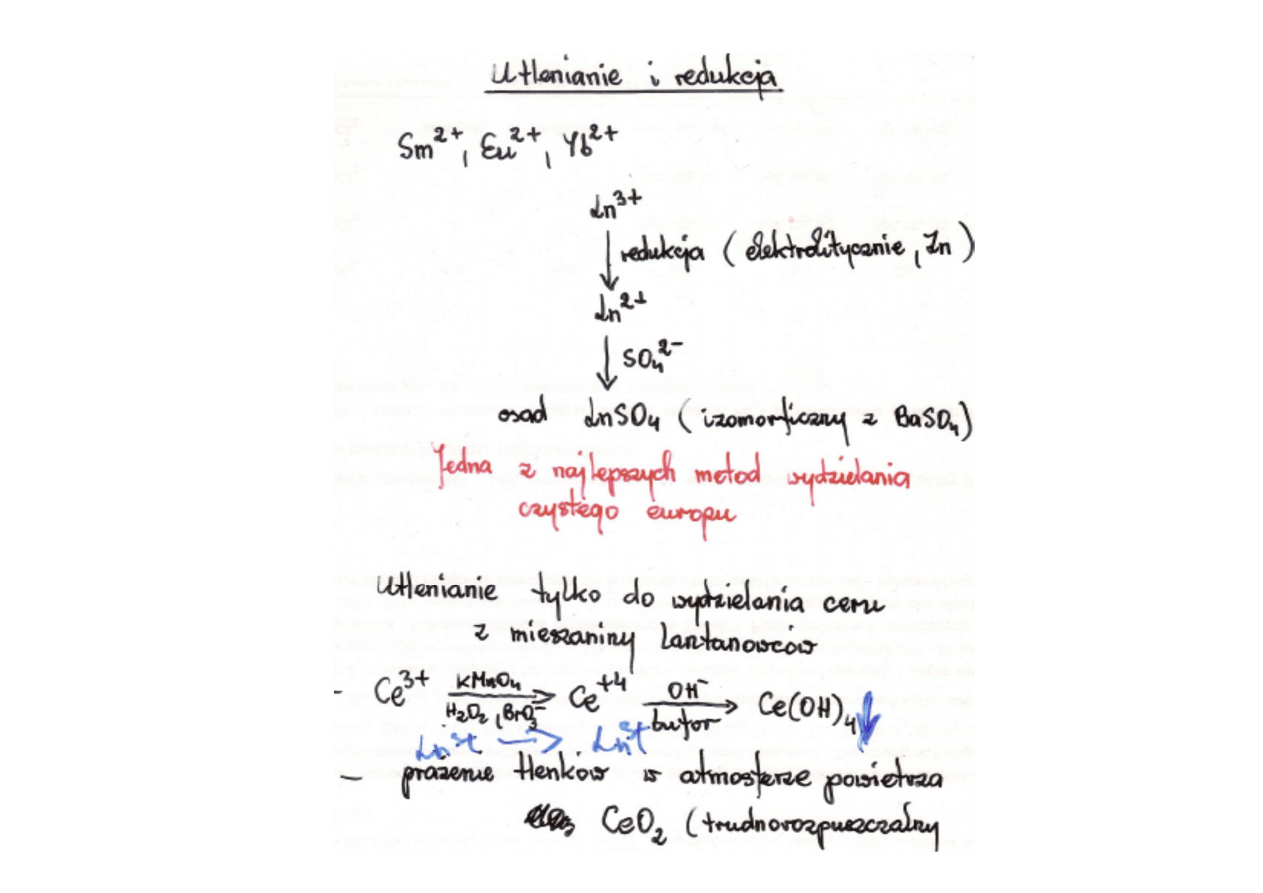 Utlenianie i redukcja
Sm²⁺, Eu²⁺, Yb²⁺
Ln³⁺
redukcja (elektrolitycznie, Zn)
Ln²⁺
SO₄²⁻
osad LnSO₄ (izomorficzny z BaSO₄)
Jedna z najlepszych metod wydzielania
czystego europu
Utlenianie tylko do wydzielania ceru
z mieszaniny lantanowców
- Ce³⁺ KMnO₄ → Ce⁺⁴ OH⁻ → Ce(OH)₄↓
H₂O₂, BrO₃⁻ bufor
Ln³⁺ → Ln³⁺
- prażenie tlenków w atmosferze powietrza
CeO₂ (trudnorozpuszczalny